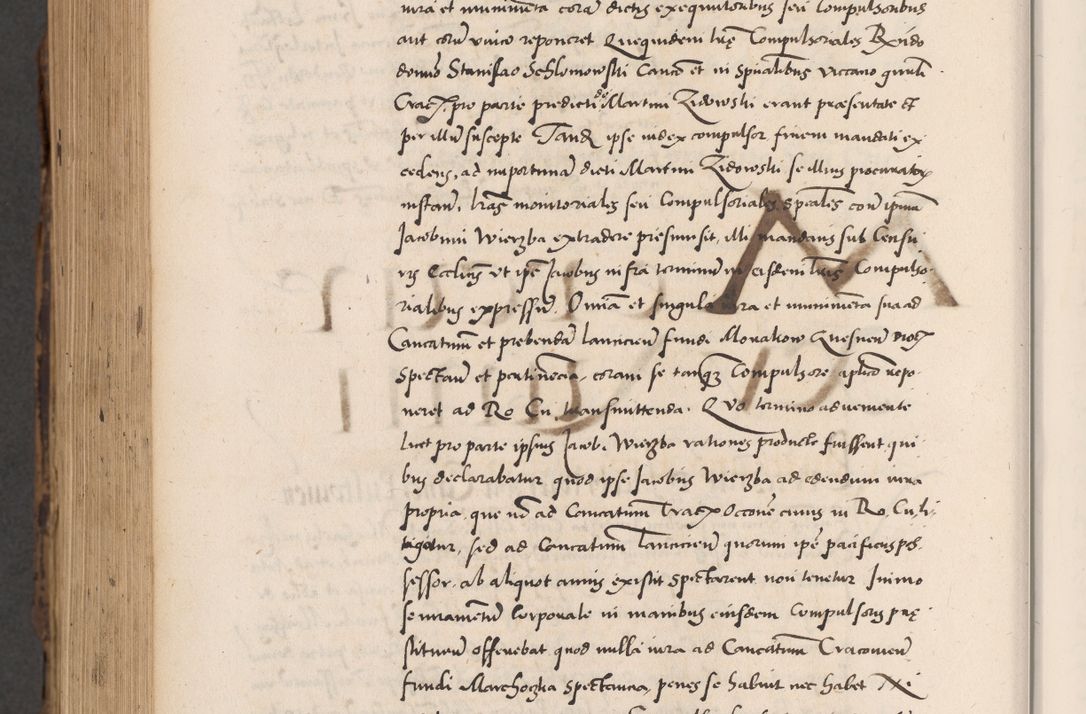 iura et munimenta corā dictis exequutoribus seu Compulsoribus
aut corū unico reponeret Quequidem lrę Compulsoriales Rndo
domiō Stanislao Schlomowsški Canco et in spūalibus vicario gnali
Crac. pro parte predicti do Martini Zidowski erant præsentate et
per illū suscepte Tandē ipse iudex compulsor finem mandati ex-
cedens, ad importunā dicti Martini Zidowski se illius procuratorē
instan. lras monitoriales seu Compulsoriales spēales con ipsum
Jacobum Wierzba extradere presumsit, illi mandans sub Censu
ris Eccliis ut ipē Jacobus infra terminum in eisdem lris Compulso
rialibus expressū. Omīa et singula iura et munimenta sua ad
Cancatum et prebendā lanicien fundi Monakow
spectan et pertinecia, coram se tanqȝ Compulsore aplico repo
neret ad Ro Cu. transmittenda. Quo termino adveniente
licet pro parte ipsius Jacobi Wierzba rationes producte fuissent qui
bus declarabatur quod ipse Jacobus Wierzba ad edendum iura
propria, que nō ad Cancatum Crac Occone cuius in Ro. Cu. li
tigatur, sed ad Cancatum lanicien quorum ipē pacificus pos
sessor ab aliquot annis existit spectarent non tenetur Inimo
se iuramentū Corporale in manibus eiusdem Compulsoris prę
stiturū offerebat quod nulla iura ad Cancatum Cracovien
fundi Marchoczka spectantia, penes se habuit nec habet